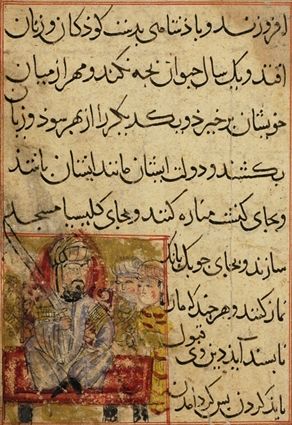 افروزند و باذشاهی بدست کوذکان و زنان
افتد و یک سال حیوان بچه نکند و مهر از میان
خویشان برخیزد و یکدیکر را از بهر سود و زیان
بکشند و دولت ایشان مانند ایشان باشد
و بجای کنشت مناره کنند و بجای کلیسیا مسجد
سازند و بجای جوبک بانک
نماز کنند و هر چند کی این
ناپسند آید دین وی قبول
باید کردن پس کردار من